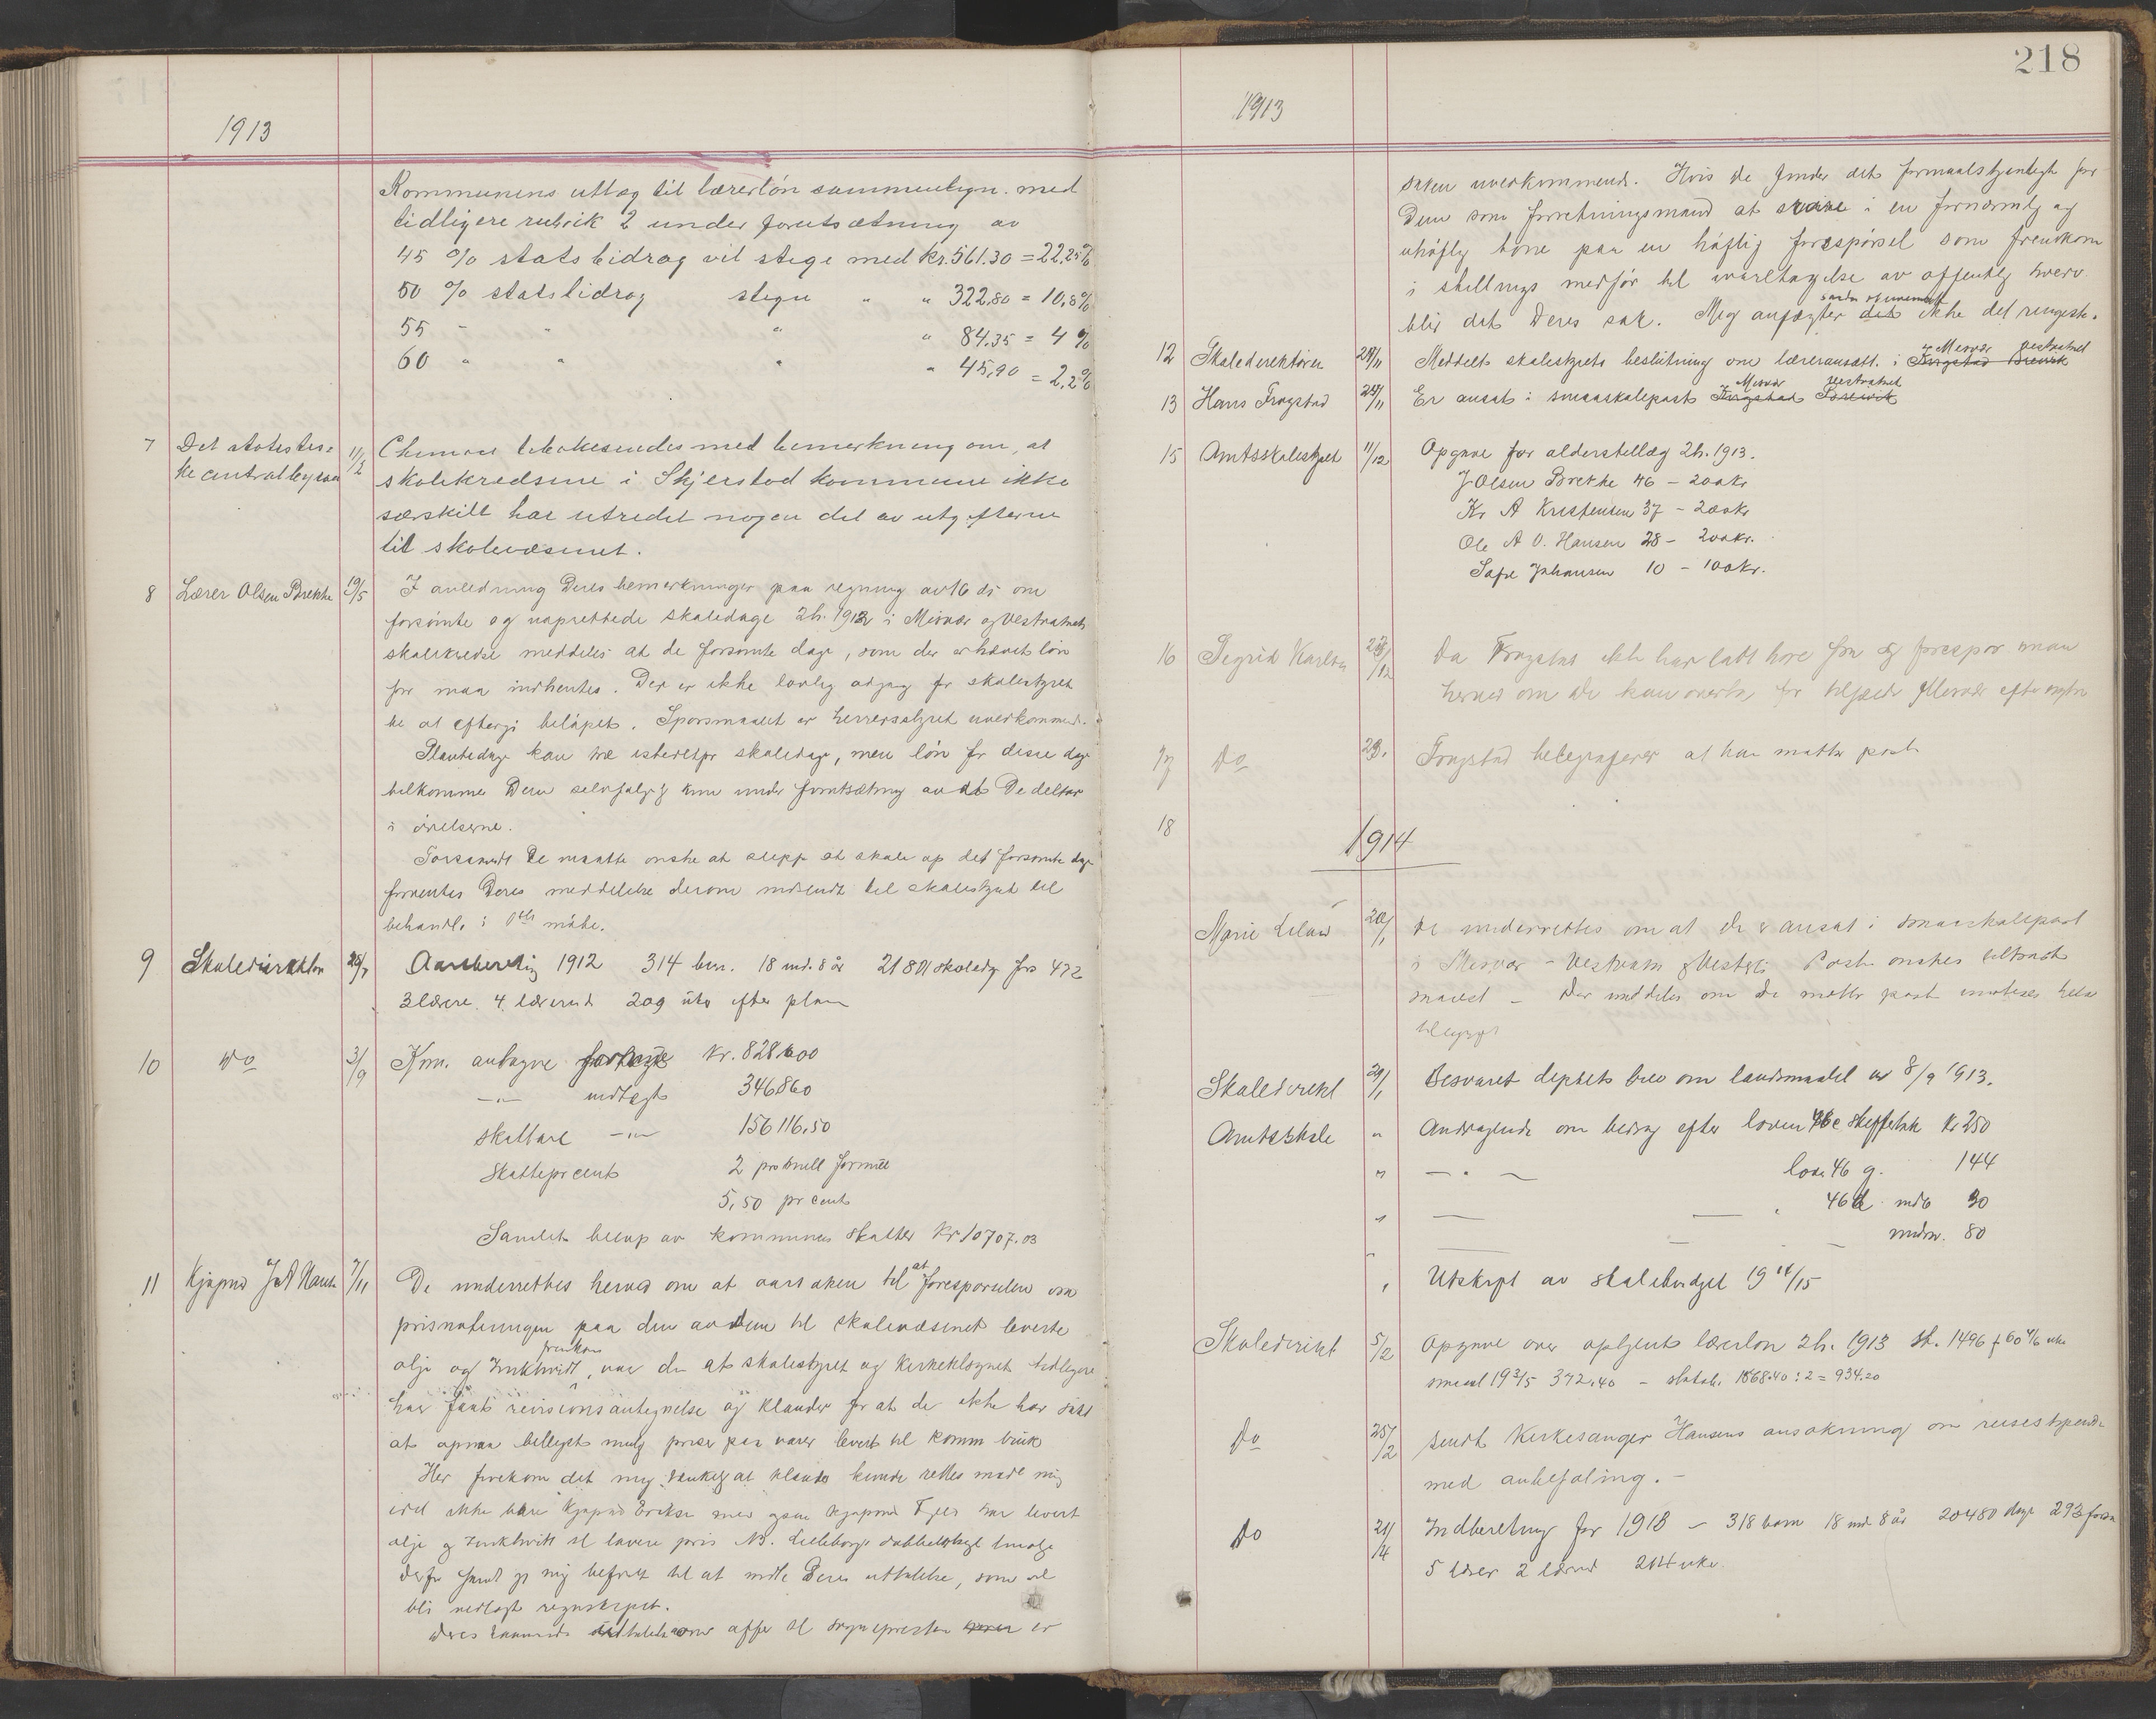 1913
Kommunens utlæg til lærerløn sammenlign. med
tidligere rubrik 2 under forutsætning av
45 % statsbidrag vil stige med kr. 561.30 = 22.25%
50 % statsbidrag stige " " 322,80 = 10,8%
55 - " " " 84,35 = 4 %
60 " " " " 45,90 = 2,2%
7 Det statistis- 11/2 Chemaer tilbakesendes med bemerkning om, at
ke centralbyraa skolekredsene i Skjerstad kommune ikke
særskilt har utredet nogen del av utgifterne
til skolevæsenet.
8 Lærer Olsen Brekke 19/5 I anledning Deres bemerkninger paa regning av 16 ds om
forsømte og uoprettede skoledage 2h. 1912 i Misvær og Vestvatnets
skolekredse meddeles at de forsømte dage, som der er hævet løn
for maa indhentes. Der er ikke lovlig adgang for skolestyret
til at eftergi beløpet. Spørsmaalet er herredsstyret uvedkommend.
Plantedage kan træ istedetfor skoledage, men løn for disse dage
tilkommer Dem selvfølgelig kun under forutsætning av at De deltar
i øvelserne.
Forsaavidt De maatte ønske at slippe at skole op det forsømte dage
forventes Deres meddelelse derom indsendt til skolestyret til
behandl. i møte.
9 Skoledirektøren 28/7 Aarsberetnig 1912 314 barn. 18 und. 8 år 21801 skoledage fors 472
3 lærere. 4 lærerind 209 uker efter plan
10 Do 3/9 Kom. antagne formue kr. 828600
-"- indtægt 346860
skattbare -"- 156116,50
Skatteprocent 2 pro mill formue
5,50 pr cent
Samlet beløp av kommunens skatter Kr 10707.03
11 Kjøpmd 7/11 De underrettes herved om at aarsaken til at forespørselen om
prisnoteringen paa den av dem til skolevæsenet leverte
olje og zinkhvidt fremkom, var den at skolestyret og kirketilsynet tidligere
har faat revisionsantegnelse og klander for at de ikke har søkt
at opnaa billigst mulig priser paa varer levert til komm bruk
Her forekom det mig tænkelig at klander kunde rettes mod mig
idet ikke bare Kjøpmd men ogsaa kjøpmd har levert
olje og zinkhvitt til lavere pris NB. Lilleborgs dobbeltkogt linolje
Derfor fandt jeg mig beføiet til at indh. Deres uttalelse, som vil
bli vedlagt regnskapet.
Deres uttalelser til sogneprester er
218
1913
saken uvedkommende. Hvis de finder det formaalstjenligt for
Dem som forretningsmand at svare i en fornærmelig og
uhøflig tone paa en høflig forespørsel som fremkom
i stillings medfør til varetagelse av offentlig hverv
blir det Deres sak. Mig anfægter det ikke det ringeste.
12 Skoledirektøren 24/11 Meddelt skolestyrets beslutning om læreransætt. i Misvær Vestvatnet
13 Hans Frogstad 24/11 Er ansat i smaaskolepost Misvær Vestvatnet
15 Amtsskolestyret 11/12 Opgave for alderstillæg 2h. 1913.
J Olsen Brekke 46 - 200 kr
Kr A Kristensen 37 - 200 kr
Ole A O. Hansen 28 - 200 kr.
Sofie Johansen 10 - 100 kr.
16 Sigrid Karlsen 23/12 Da Frogstad ikke har latt høre fra sig forespør man
herved om De kan overta
17 Do 23. Frogstad telegraferer at han mottar post
18
1914
Marie 20/1 De underrettes om at De er ansat i smaaskolepost
i Misvær - Vestvatn Posten ønskes tiltraadt
snarest -
Skoledirekt 29/1 Besvaret deptets brev om landsmaalet av 8/9 1913.
Amtsskole " Andragende om bidrag efter loven 46 c Skjerstad Kr 250
" - " - love 46 g. 144
" 46 d. 30
" undv. 80
" Utskrift av skolebudget 1914/15
Skoledirekt 5/2 Opgave over optjent lærerløn 2h. 1913 st. 1496 + 60 4/6 uke
372.40 - statsb. 1868.40 : 2 = 934.20
Do 25/2 sendt Kirkesanger Hansens ansøkning om reisestipendie
med anbefaling. -
Do 21/4 Indberetning for 1913 - 318 barn 18 und 8 år 20480 dage 293 forsø
5 lærer 2 lærind 214 uker